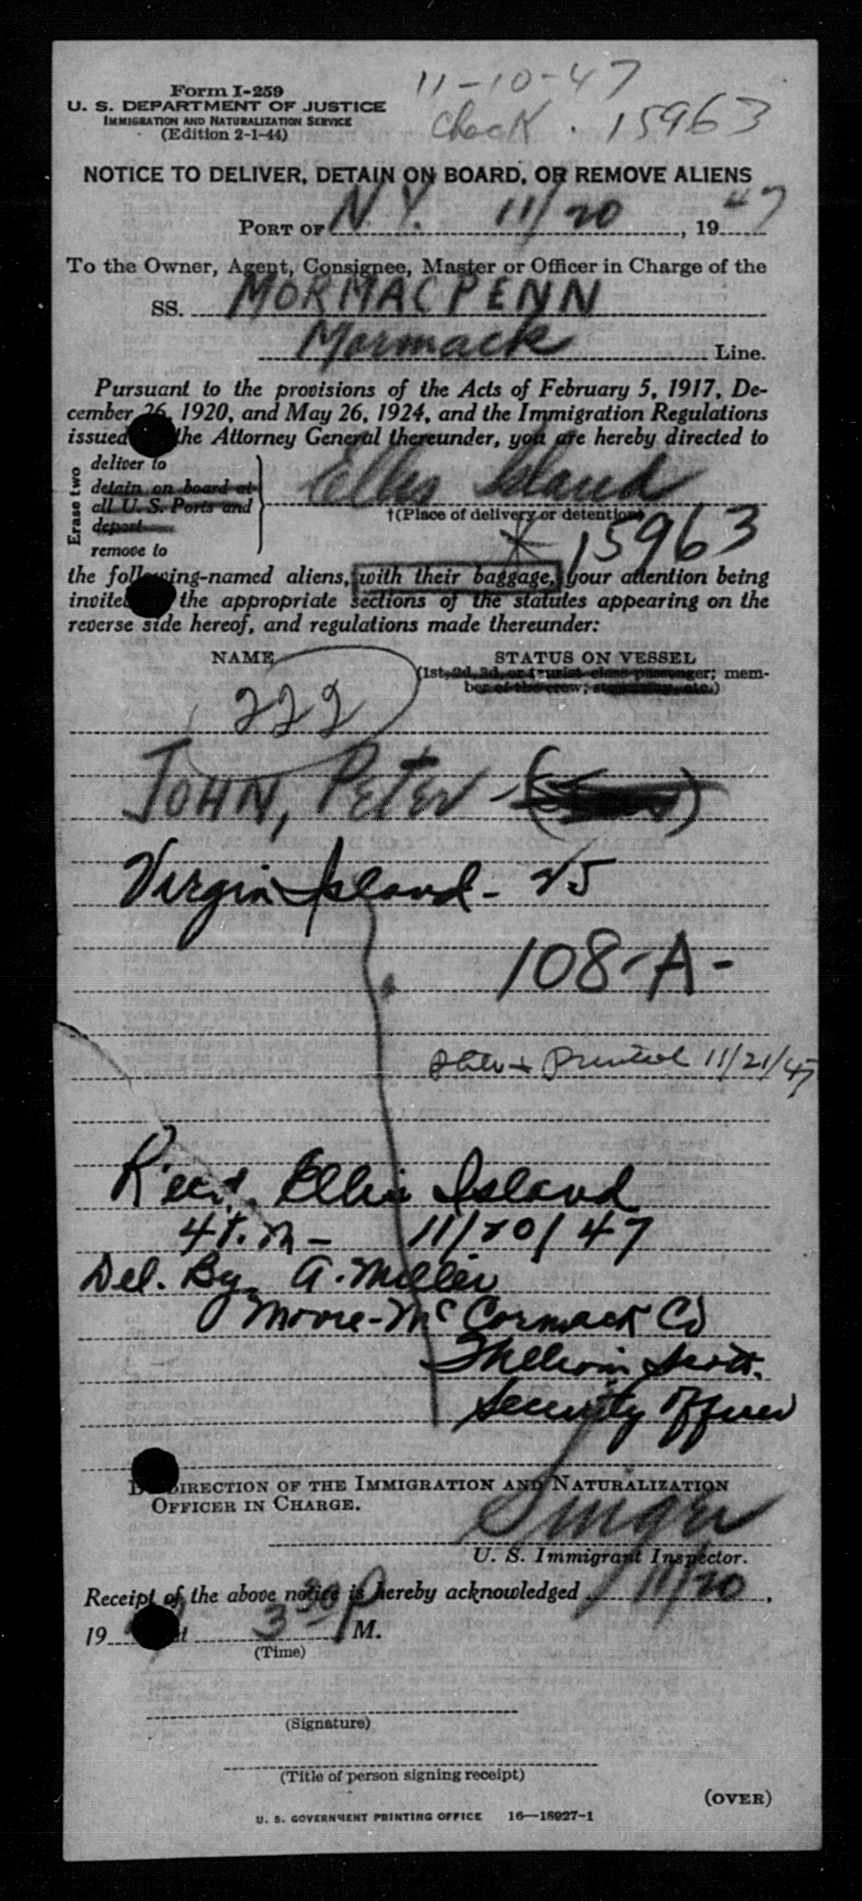 11-10-47
Form I-259
U. S. DEPARTMENT OF JUSTICE
IMMIGRATION AND NATURALIZATION SERVICE
(Edition 2-1-44)
Check . 15963
NOTICE TO DELIVER, DETAIN ON BOARD, OR REMOVE ALIENS
PORT OF N.Y. 11/20, 1947
To the Owner, Agent, Consignee, Master or Officer in Charge of the
SS. MORMACPENN
Mormack Line.
Pursuant to the provisions of the Acts of February 5, 1917, De-
cember 26, 1920, and May 26, 1924, and the Immigration Regulations
issued the Attorney General thereunder, you are hereby directed to
Erase two
deliver to
detain on board at
all U. S. Ports and
deport
remove to
Ellis Island
†(Place of delivery or detention)
15963
the following-named aliens, with their baggage, your attention being
invited the appropriate sections of the statutes appearing on the
reverse side hereof, and regulations made thereunder:
NAME STATUS ON VESSEL
(1st, 2d, 3d, or tourist class passenger; mem-
ber of the crew; stowaway, etc.)
222
JOHN, PETER - ( )
Virgin Island - 25
108-A-
Printed 11/21/47
Rec'd. Ellis Island
4 P.M - 11/20/47
Del. By A. Miller
Moore-McCormack Co
Scott.
Security Officer
DIRECTION OF THE IMMIGRATION AND NATURALIZATION
OFFICER IN CHARGE.
Singer
U. S. Immigrant Inspector.
Receipt of the above notice is hereby acknowledged 11/20,
1947 at 3 30 P M.
(Time)
(Signature)
(Title of person signing receipt)
(OVER)
U. S. GOVERNMENT PRINTING OFFICE 16—18927-1